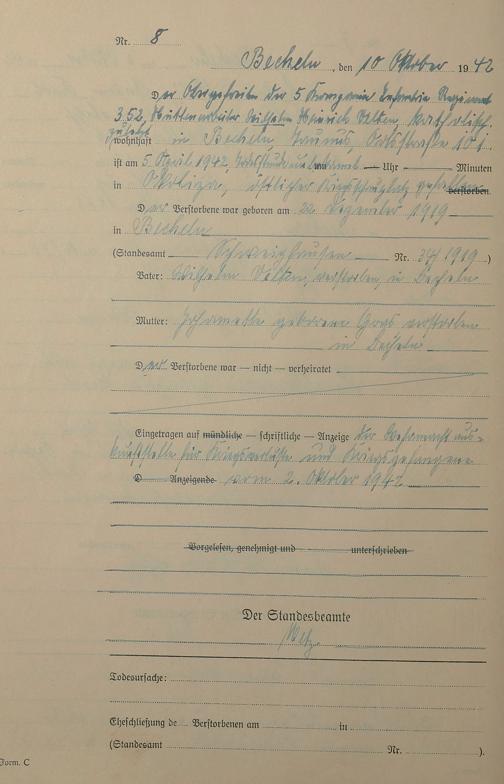 Nr. 8
Becheln, den 10 Oktober 1942
Der Obergefreite der 5 Kompanie Infanterie Regiment
352, Hüttenarbeiter Wilhelm Heinrich, katholisch
zuletzt wohnhaft in Becheln, Taunus, 101
ist am 5 April 1942, Todesstunde unbekannt — Uhr — Minuten
in östlicher Kriegsschauplatz gefallen verstorben
Der Verstorbene war geboren am 22 Dezember 1919
in Becheln
(Standesamt Schweighausen Nr. 34/1919)
Vater: Wilhelm, verstorben in Becheln
Mutter: geborene verstorben
in Becheln
Der Verstorbene war — nicht — verheiratet
Eingetragen auf mündliche — schriftliche — Anzeige der Wehrmachtaus-
kunftstelle für Kriegsverluste und Kriegsgefangene
D Anzeigende vom 2. Oktober 1942
Vorgelesen, genehmigt und unterschrieben
Der Standesbeamte
Todesursache:
Eheschließung de Verstorbenen am in
(Standesamt Nr. ).
Form. C